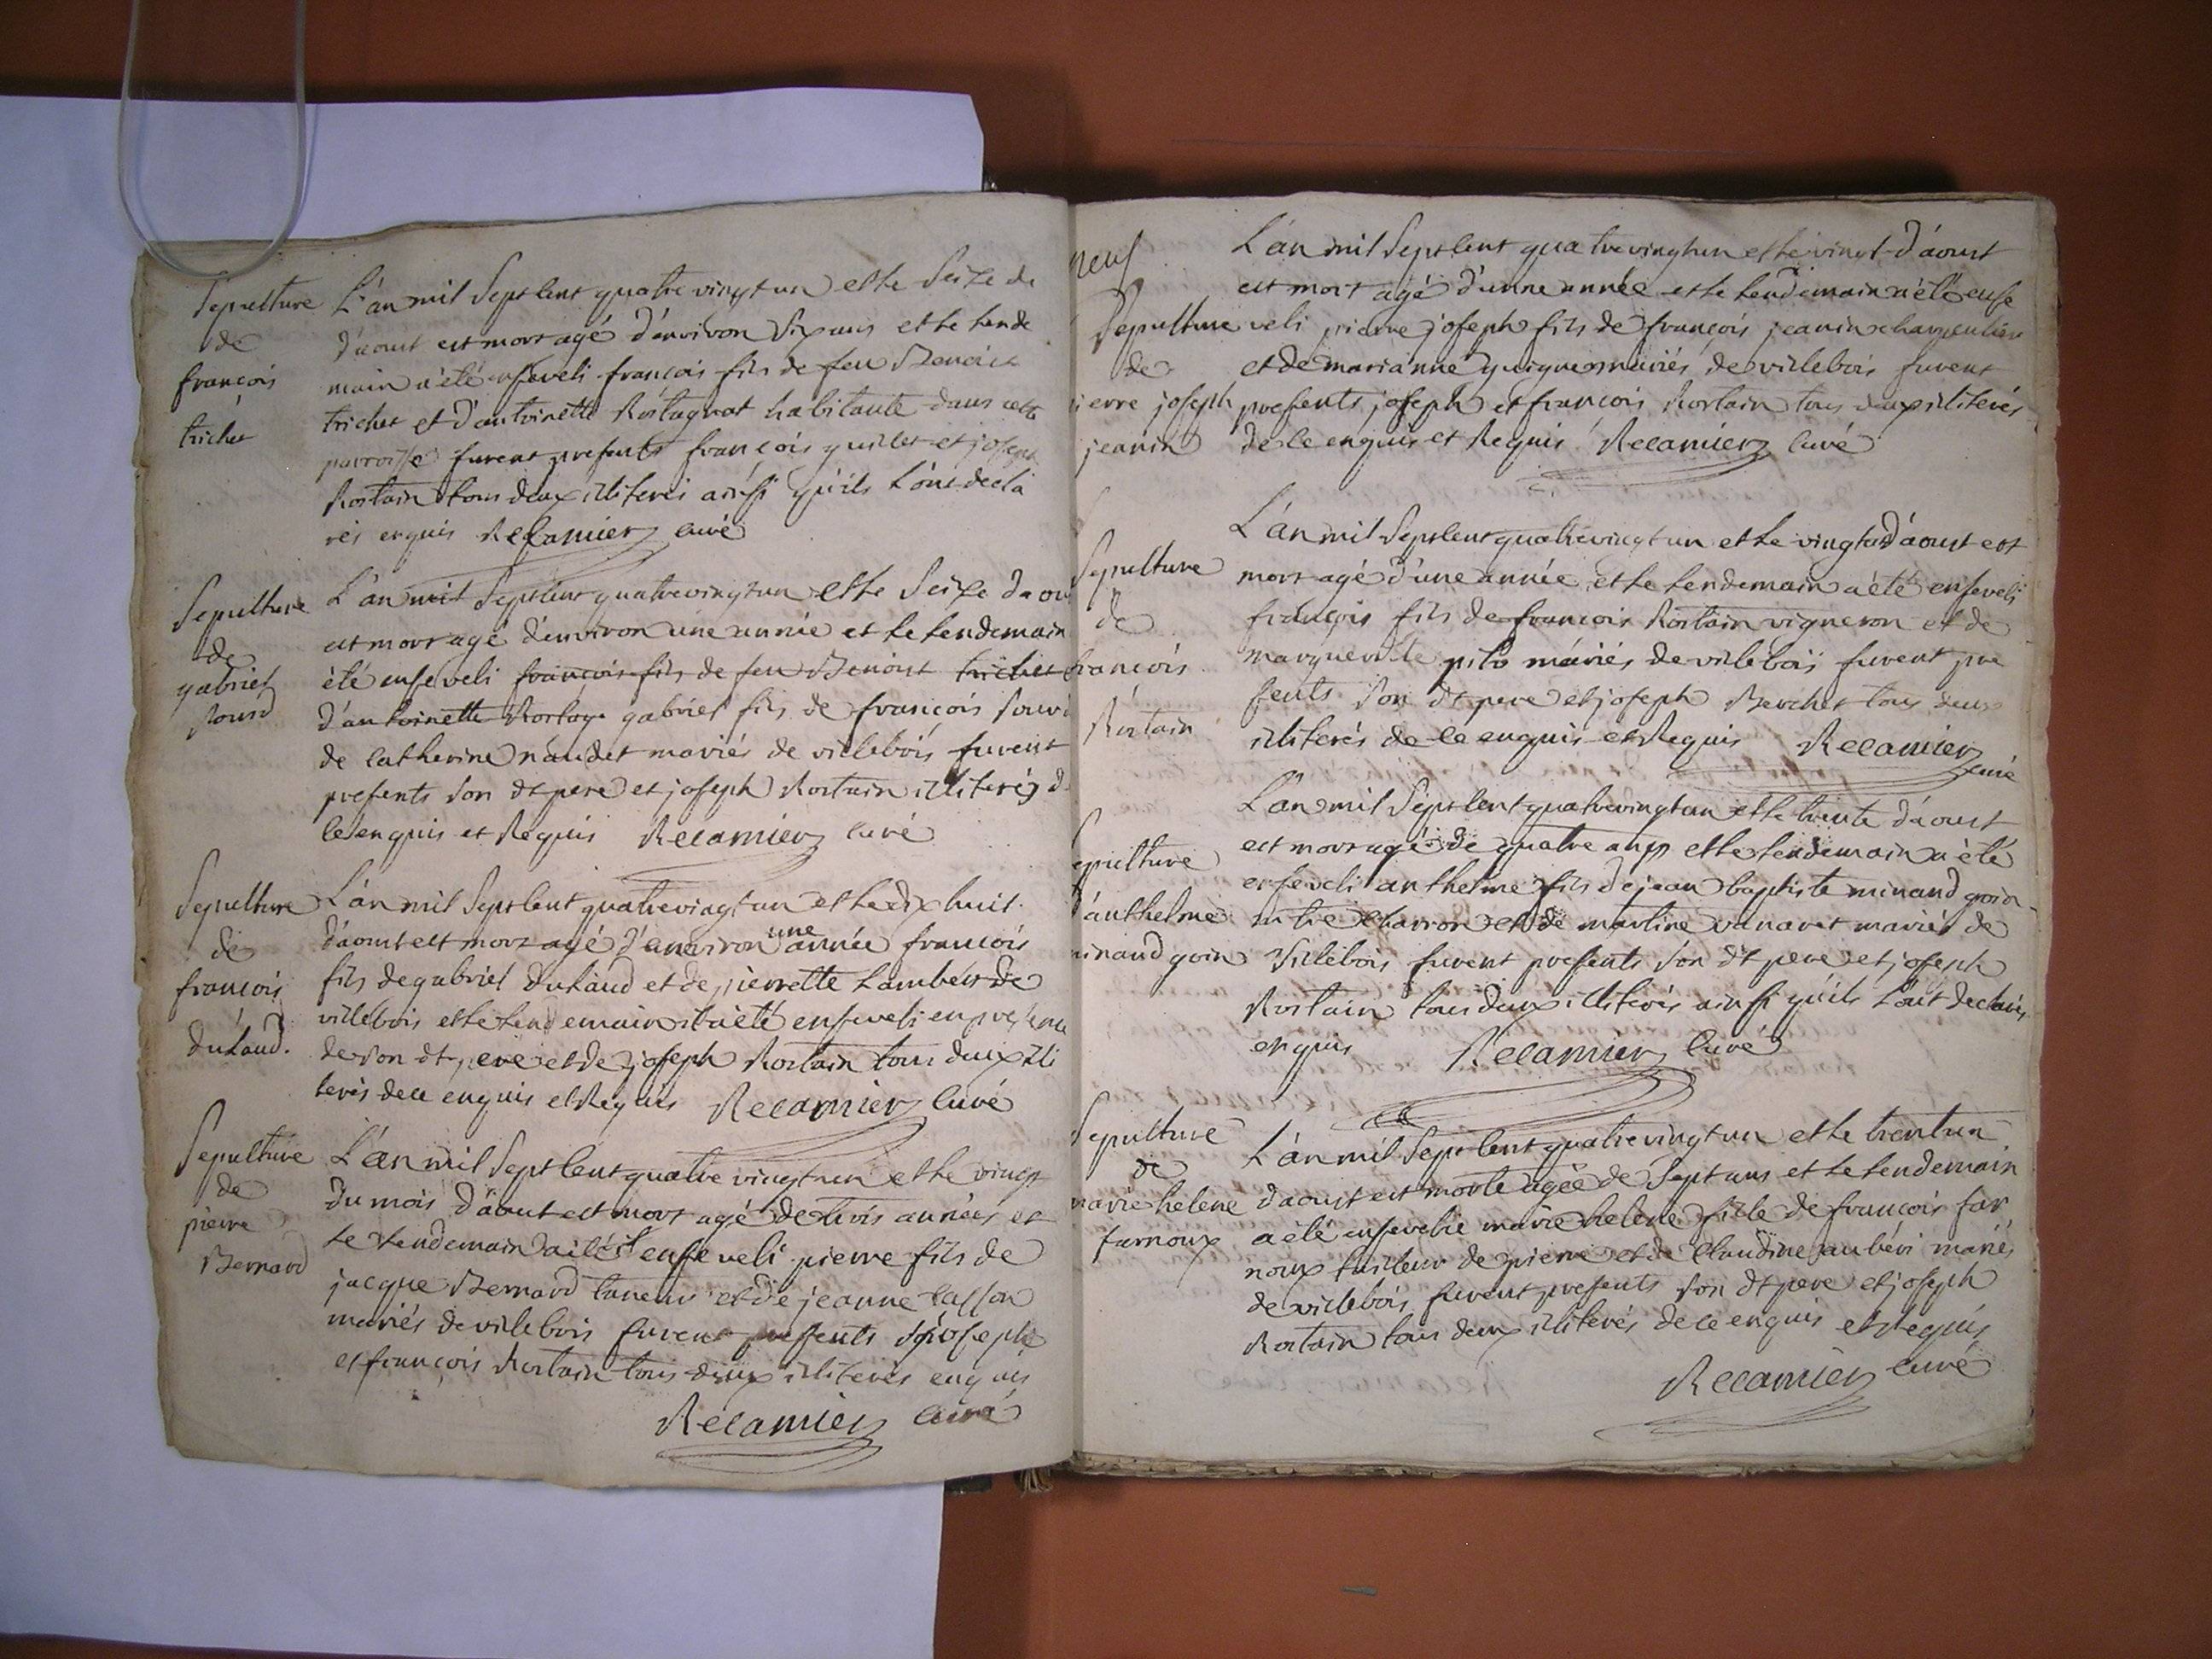 Sepulture
de
françois
trichet
L'an mil Sept Cent quatre vingt un et le Seize de
d'aoust est mort agé d'environ Six ans et le lende
main a été enseveli françois fils de feu Benoist
trichet et d'antoinette Rostagnat habitante dans cette
parroisse furent presents françois guillet et joseph
Rostain tous deux illiterés ainsi qu'ils L'ont decla
rés enquis Recamier curé
Sepulture
de
gabriel
Sourd
L'an mil Sept Cent quatre vingt un et le Seize daou
est mort agé d'environ une année et le lendemain
été enseveli françois fils de feu Benoist trichet
d'antoinette Rostag gabriel fils de françois Sourd
de Catherine naudet mariés de villebois furent
presents Son dt pere et joseph Rostain illiterés d
ce enquis et Requis Recamier curé
Sepulture
de
françois
duhaud.
L'an mil Sept Cent quatre vingt un et le dix huit
d'aoust est mort agé d'environ une année françois
fils de gabriel duhaud et de pierrette Lambert de
villebois et le lendemain il a été enseveli en presence
de Son dt pere et de joseph Rostain tous deux illi
terés de ce enquis et Requis Recamier Curé
Sepulture
de
pierre
Bernard
L'an mil Sept Cent quatre vingt un et le vingt
du mois d'aoust est mort agé de trois années et
le lendemain a été enseveli pierre fils de
jacque Bernard taneur et de jeanne Casson
mariés de villebois furent presents joseph
et françois Rostain tous deux illiterés enquis
Recamier curé
neuf
Sepulture
de
ierre joseph
jeanin
L'an mil Sept Cent quatre vingt un et le vingt d'aoust
est mort agé d'unne année et le lendemain a été ense
veli pierre joseph fils de françois jeanin charpentier
et de marianne guigue mariés de villebois furent
presents joseph et françois Rostain tous deux illiterés
de ce enquis et Requis Recamier Curé
Sepulture
de
francois
Rostain
L'an mil Sept Cent quatre vingt un et le vingt d'aoust est
mort agé d'une année et le lendemain a été enseveli
françois fils de françois Rostain vigneron et de
marguerite mariés de villebois furent pre
sents Son dt pere et joseph Berchet tous deux
illiterés de ce enquis et Requis Recamier
curé
epulture
d'anthelme
inand goin
L'an mil Sept Cent quatre vingt un et le trente d'aoust
est mort agé de quatre ans et le lendemain a été
enseveli anthelme fils de jean baptiste minand goin
mtre charron et de martine vanaret mariés de
villebois furent presents Son dt pere et joseph
Rostain tous deux illiterés ainsi qu'ils L'ont declaré
enquis Recamier Curé
Sepulture
de
marie helene
farnoux
L'an mil Sept Cent quatre vingt un et le trentun
d'aoust est morte agée de Sept ans et le lendemain
a été ensevelie marie helene fille de françois far
noux tailleur de pierre et de Claudine jauberi mariés
de villebois furent presents Son dt pere et joseph
Rostain tous deux illiterés de ce enquis et Requis
Recamier curé